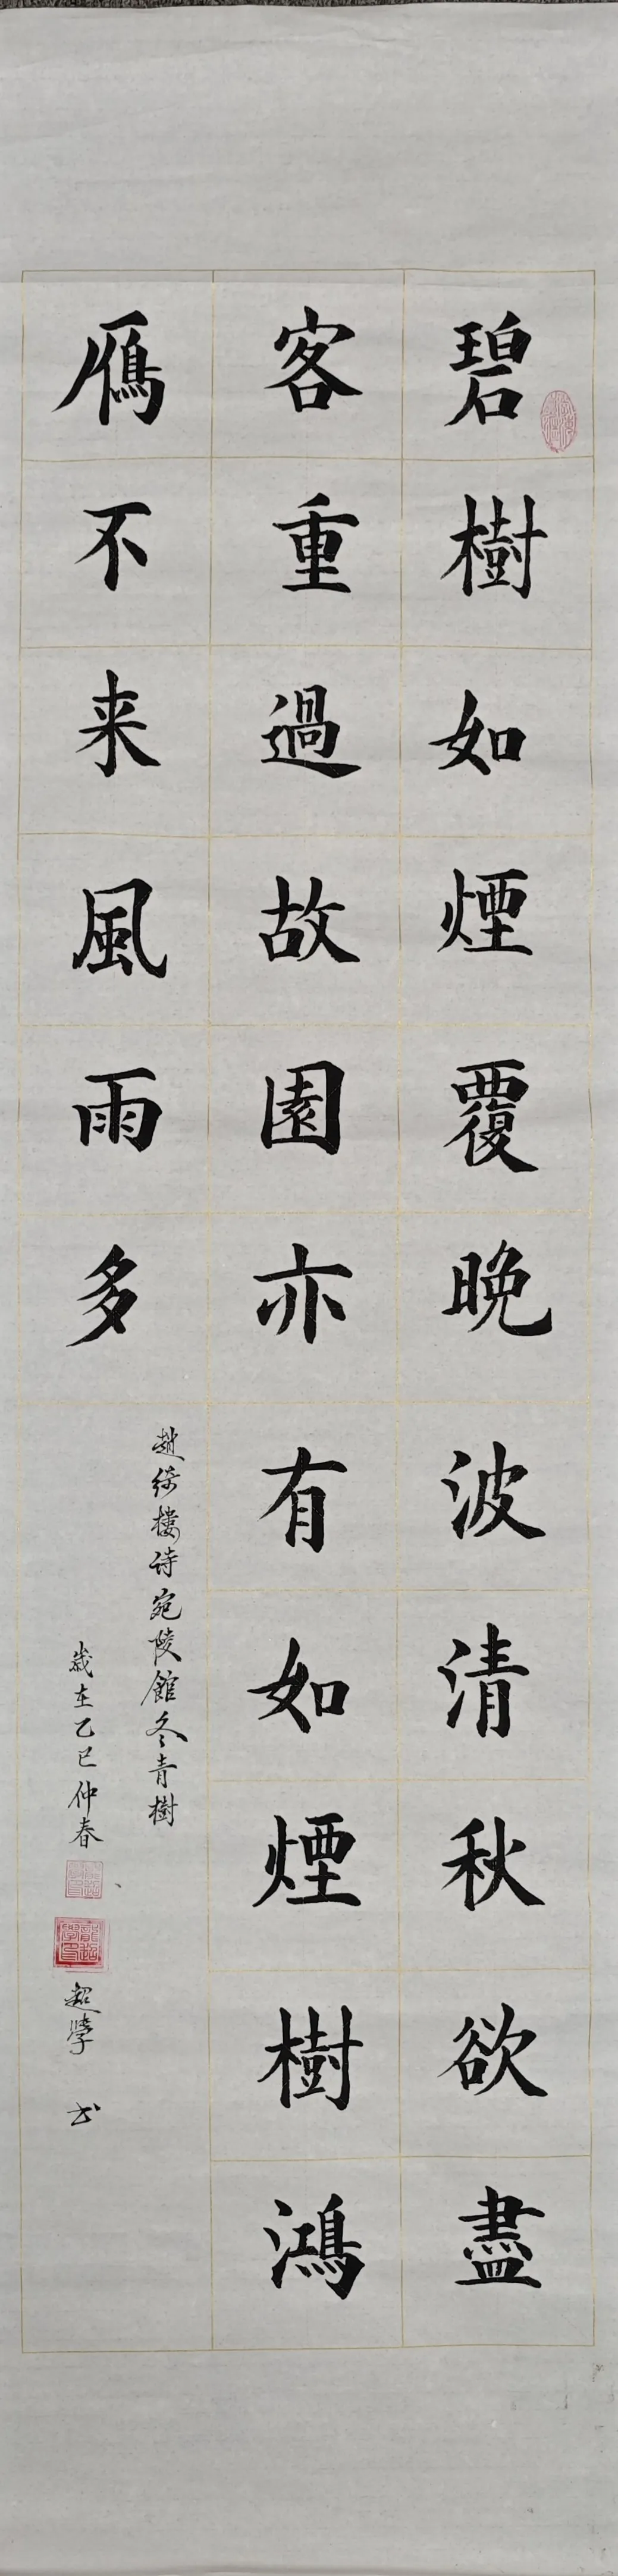 碧樹如煙覆晚波清秋欲盡
客重過故園亦有如煙樹鴻
鴈不来風雨多
趙綺樓诗宛陵館冬青樹
歲在乙巳仲春
超學书